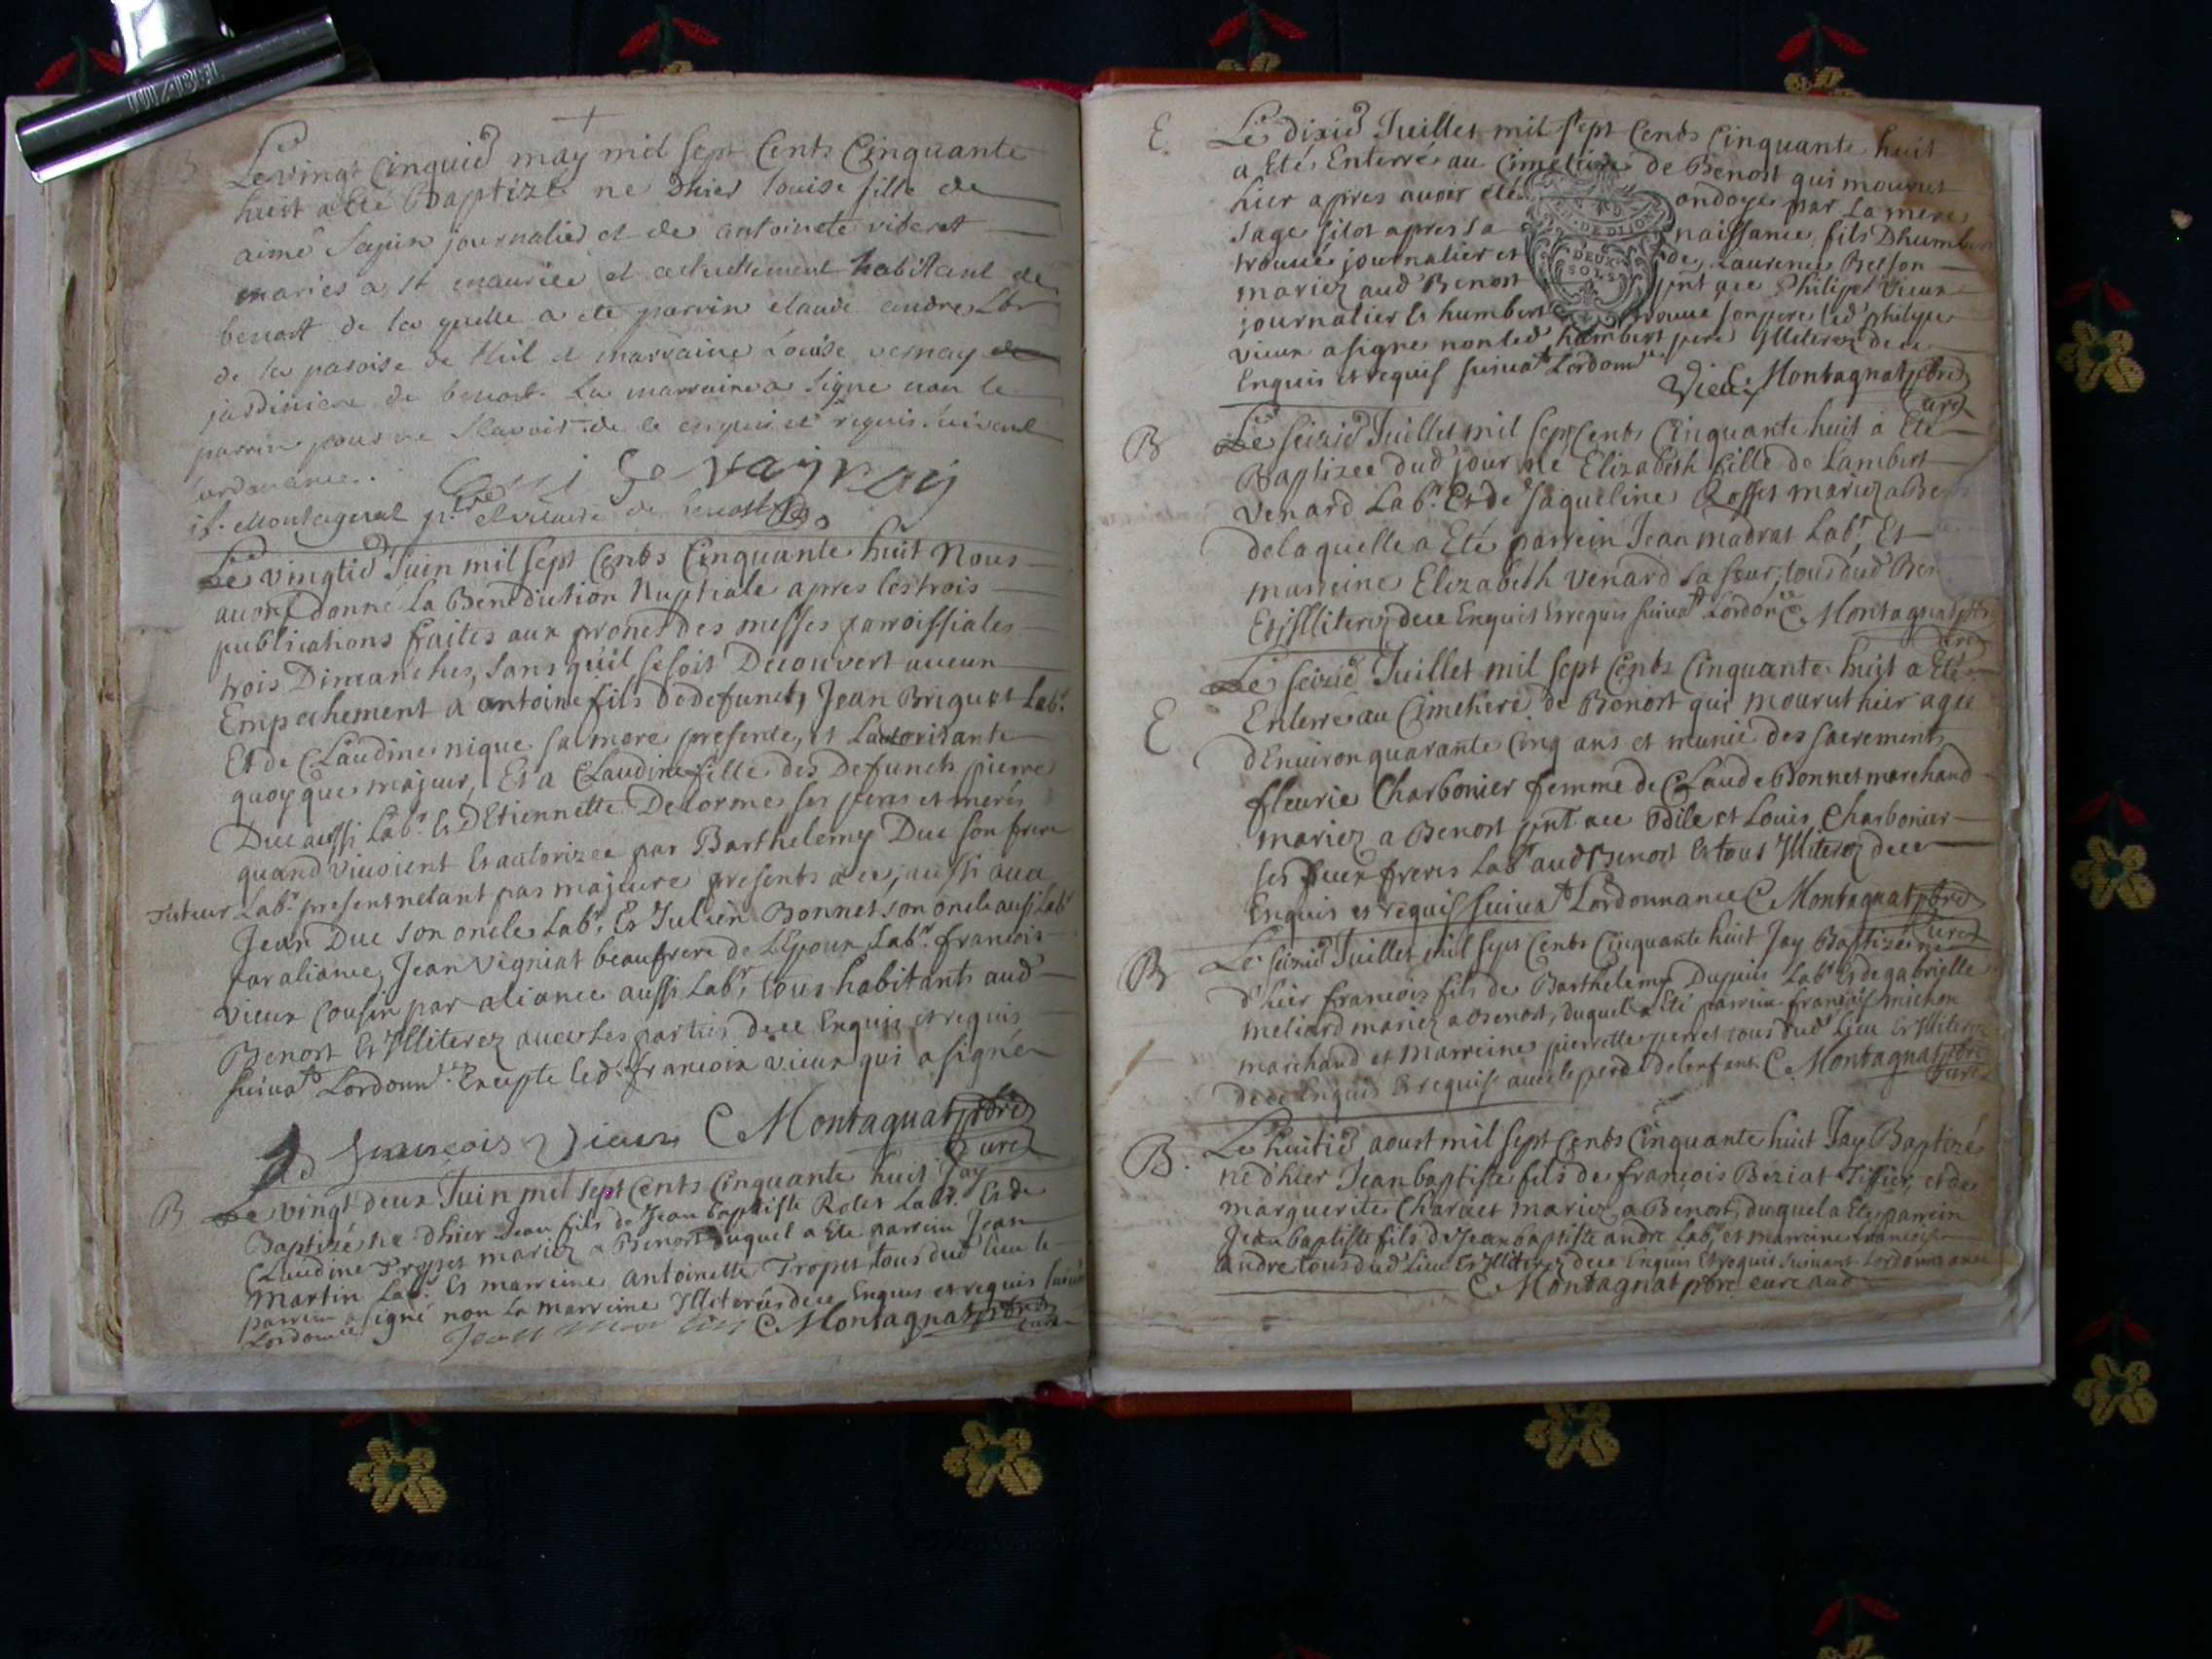 WABEL
Le vingt cinquie may mil sept cents Cinquante
huit a été baptizé ne Dhier louise fille de
aimé Sapin journalier et de antoinete viberet
mariés a st maurice et actuellement habitant de
benost de la quelle a ete parrin claude andre Lbr
de la paroise de et marraine Louise vernay
jardiniere de benost. La marraine a signe non le
parrin pour ne sçavoir de ce enquis et requis suivant
lordonance.
Montagnat ptre et vicaire de benost
Le vingtie Juin mil sept Cents Cinquante huit Nous
avons donné La Benediction Nuptiale apres les trois
publications faites aux prones des messes parroissiales
trois Dimanches, sans qu'il se soit Decouvert aucun
Empechement a antoine fils de defunct Jean Briquet Labr
Et de Claudine nique sa mere presente, et Lautorizante
quoyque majeur, Et a Claudine fille des Defuncts pierre
Duc aussi Labr. Et DEtiennette Delorme ses peres et meres
quand vivoient Et autorizée par Barthelemy Duc son frere
Tuteur Labr. present netant pas majeure presents a ce, aussi avec
Jean Duc son oncle Labr, Et Julien Bonnet son oncle aussi Labr
par aliance, Jean Vigniat beaufrere de LEpoux Labr. francois
vieux Cousin par aliance aussi Labr, tous habitants aud
Benost Et Illiterez avec les parties de ce Enquis et requis
suivat Lordonne. Excepte led. francois vieux qui a signé
francois Vieux C Montagnat pbre
Curé
B Le vingt deux Juin mil sept Cents Cinquante huit Jay
Baptizé ne dhier Jean fils de Jean baptiste Rolet Labr. Et de
Claudine Tropet mariez a Benost duquel a Ete parrein Jean
Martin Labr. Et marreine antoinette Tropet tous dud lieu le
parrein a signé non la marreine Illiterée de ce Enquis et requis suivat
Lordonnce Jean Martin C Montagnat pbre
curé
E. Le dixie Juillet mil sept Cents Cinquante huit
a Eté Enterré au Cimetiere de Benost qui mourut
hier apres avoir été ondoyé par La mere
sage sitot apres sa naissance, fils Dhumbert
trouvé journalier et de Laurence Berson
mariez aud Benost pnt a ce Philipe Vieux
journalier Et humbert trouvé son pere led philipe
vieux a signe non led humbert pere Illiterez de ce
Enquis et requis suivat Lordonne
DEUX
SOLS
Vieux C Montagnat pbre
Curé
B Le seizie Juillet mil sept Cents Cinquante huit a Eté
Baptizée dud jour né Elizabeth fille de Lambert
Venard Labr. Et de Jaqueline Rosset mariez a Ben
de laquelle a Eté parrein Jean madrat Labr, Et
marreine Elizabeth Venard sa sœur, tous dud Ben
Et Illiterez de ce Enquis Et requis suivat Lordonce C Montagnat pbre
Curé
Le seizie Juillet mil sept Cents Cinquante huit a Eté
E Enterré au Cimetiere de Benost qui mourut hier agée
dEnviron quarante Cinq ans et munie des sacrements
fleurie Charbonier femme de Claude Bonnet marchand
mariez a Benost pnt a ce Odile et Louis Charbonier
ses deux freres Labr aud Benost Et tous Illiterez de ce
Enquis et requis suivat Lordonnance C Montagnat pbre
Curé
B Le seizie Juillet mil sept Cents Cinquante huit Jay Baptizé né
d'hier francois fils de Barthelemy Dupuis Labr Et de gabrielle
meliard mariez a Benost, duquel a Eté parrein francois michon
marchand et Marreine pierrette perret tous dud lieu Et Illiterez
de ce Enquis Et requis avec le pere de lenfant C Montagnat pbre
Curé
B. Le huitie aoust mil sept Cents Cinquante huit Jay Baptizé
né d'hier Jean baptiste fils de françois Beziat Tissier, et de
marguerite Charvet mariez a Benost, duquel a Ete parrein
Jean baptiste fils de Jean baptiste andre Labr, et marreine francoise
andre tous dud lieu Et Illiterez de ce Enquis Et requis suivant Lordonnance
C Montagnat pbre curé aud